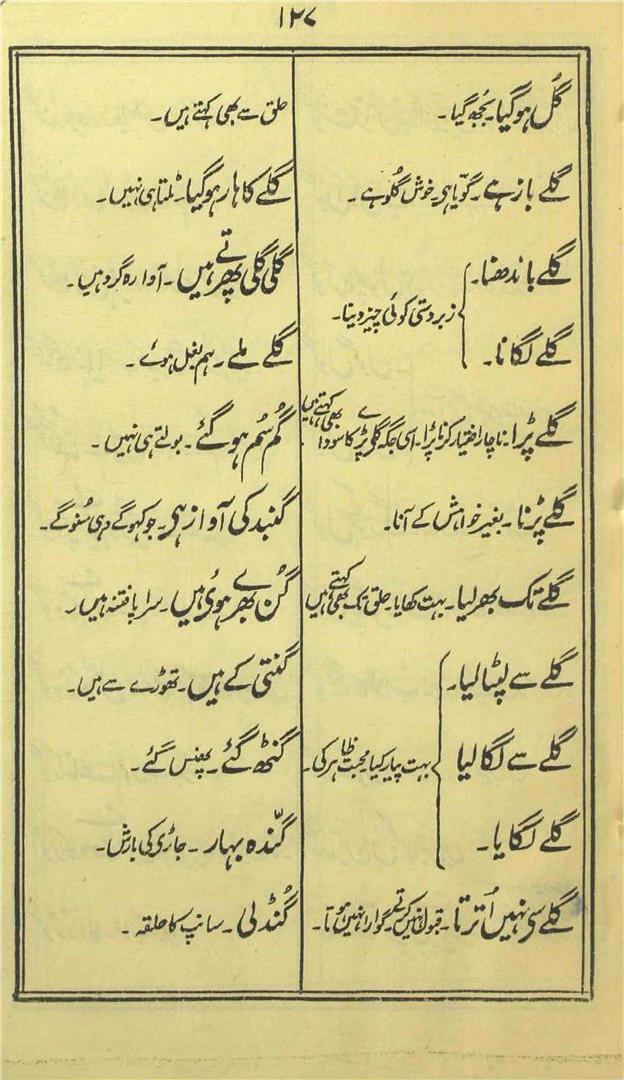 ۱۲۷
گُل ہوگیا۔ بُجھ گیا۔
گلے باز ہے۔ گویا ہی۔ خوش گلو ہے۔
گلے باندھنا۔
زبردستی کوئی چیز دینا۔
گلے لگانا۔
گلے پڑا۔ ناچار اختیار کرنا پڑا۔ اسی جگہ گلے پڑے کا سودا بھی کہتے ہیں
گلے پڑنا۔ بغیر خواہش کے آنا۔
گلے تک بھر لیا۔ بہت کھایا۔ حلق تک بھی کہتے ہیں
گلے سے لپٹا لیا۔
گلے سے لگا لیا
بہت پیار کیا۔ محبت ظاہر کی۔
گلے لگایا۔
گلے سی نہیں اُترتا۔ قبول نہیں کرتے۔ گوارا نہیں ہوتا۔
حلق سے بھی کہتے ہیں۔
گلے کا ہار ہوگیا۔ ٹلتا ہی نہیں۔
گلی گلی پھرتے ہیں۔ آوارہ گرد ہیں۔
گلے ملے۔ ہم بغل ہوئے۔
گُم سُم ہو گئے۔ بولتے ہی نہیں۔
گنبد کی آواز ہی۔ جو کہوگے وہی سُنوگے۔
گُن بھرے ہوئ ہیں۔ سراپا فتنہ ہیں۔
گنتی کے ہیں۔ تھوڑے سے ہیں۔
گنٹھ گئے۔ پھنس گئے۔
گنّدہ بہار۔ جاڑی کی بارش۔
گُنڈلی۔ سانپ کا حلقہ۔